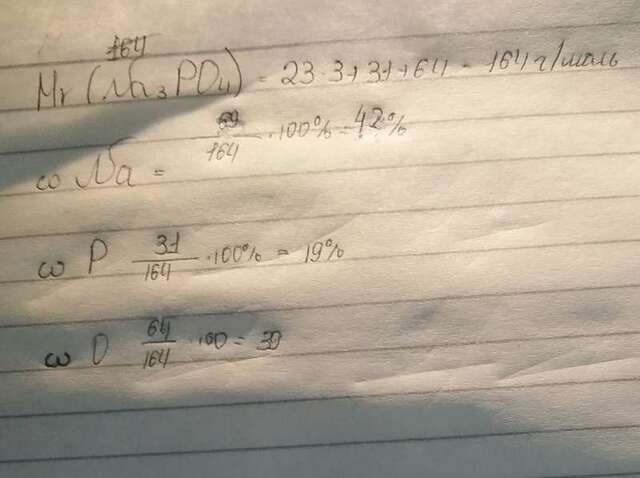 164
Mr (Na₃PO₄) = 23·3+31+64 = 164 г/моль
ω Na = 69/164 ·100% = 42%
ω P 31/164 ·100% = 19%
ω O 64/164 ·100 = 39